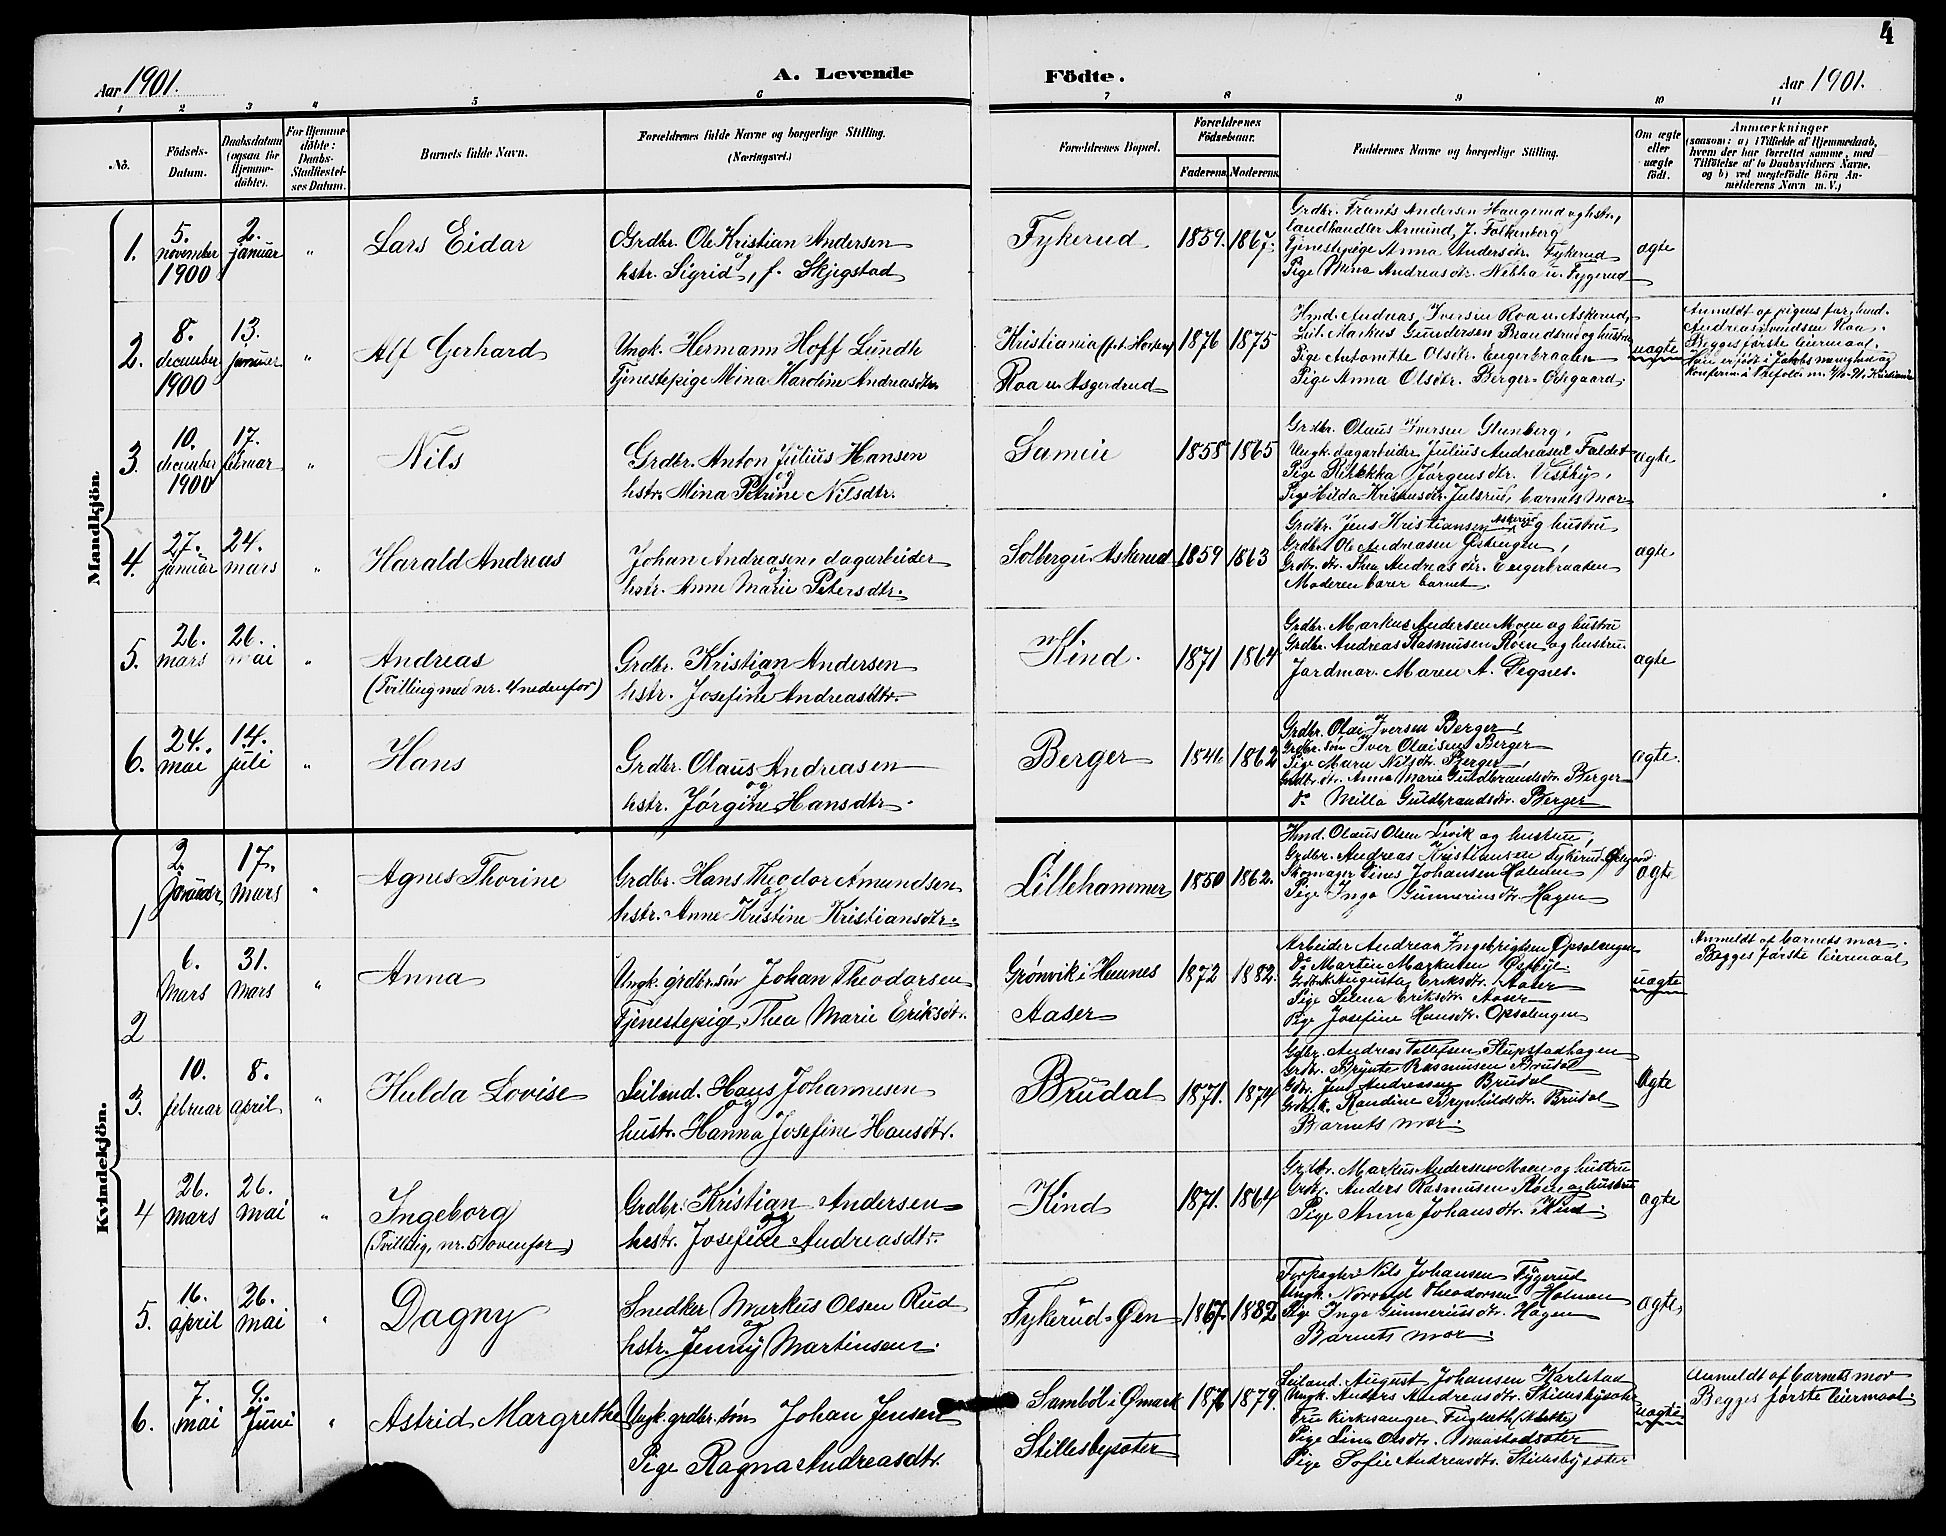 4
Aar 1901.
A. Levende Födte.
Aar 1901.
1 2 3 4 5 6 7 8 9 10 11
No.
Födsels-Datum.
Daabsdatum (ogsaa for Hjemme-döbte).
For Hjemme-döbte: Daabs-Stadfæstelses Datum.
Barnets fulde Navn.
Forældrenes fulde Navne og borgerlige Stilling.
(Næringsvei.)
Forældrenes Bopæl.
Forældrenes Födselsaar.
Faderens. Moderens.
Faddernes Navne og borgerlige Stilling.
Om ægte eller uægte födt.
Anmærkninger
(saasom: a) i Tilfælde af Hjemmedaab, hvem der har forrettet samme, med Tilföielse af to Daabsvidners Navne, og b) ved uægtefödte Börn Anmelderens Navn m. V.)
Mandkjön.
1. 5. november 1900
2. januar
"
Lars Eidar
Grdbr. Ole Kristian Andersen
og
hstr. Sigrid, f. Skjegstad
Fykerud
1859. 1867.
Grdbr. Frants Andersen Haugerud og hstr.,
Landhandler Amund J. Falkenberg
Tjenestepige Anna Andersdtr. Fykerud
Pige Mina Andreasdtr. Nebba u. Fygerud
ægte
2. 8. december 1900
13. januar
"
Alf Gerhard
Ungk. Hermann Hoff Lundh
Tjenestepige Mina Karoline Andreasdtr.
Kristiania (f.t. Horten)
Roa u. Asgerdrud
1876 1875
Hmd. Andreas Iversen Roa u. Askerud,
Leil. Markus Gundersen Brandsrud og hustru
Pige Antonette Olsdtr. Engerbraaten
Pige Anna Olsdtr. Berger-Ødegaard.
uægte
Anmeldt af pigens far, hmd.
Begges første leiermaal.
3. 10. december 1900
17. februar
"
Nils
Grdbr. Anton Julius Hansen
og
hstr. Mina Petrine Nilsdtr.
Sameie
1858 1865
Grdbr. Olaus Iversen Glenberg,
Ungk. dagarbeider Julius Andreasen Faldet
Pige Rebekka Jørgensdtr. Vestby,
Pige Hilda Kristensdtr. Julsrud, barnets mor
ægte
4. 27. januar
24. mars
"
Harald Andreas
Johan Andreasen, dagarbeider
og
hstr. Anne Marie Petersdtr.
Solberg u. Askerud
1859 1863
Grdbr. Jens Kristiansen Askerud og hustru
Grdbr. Ole Andreasen Østengen,
Grdbr. dtr. Thea Andreasdtr. Engerbraaten
Moderen bærer barnet.
ægte
5. 26. mars
26. mai
"
Andreas
(Tvilling med nr. 4 nedenfor)
Grdbr. Kristian Andersen
og
hstr. Josefine Andreasdtr.
Kind.
1871 1864
Grdbr. Markus Andersen Moen og hustru
Grdbr. Andreas Rasmusen Roen og hustru.
Jordmor Maren A. Degnes.
ægte
6. 24. mai
14. juli
"
Hans
Grdbr. Olaus Andreasen
og
hstr. Jørgine Hansdtr.
Berger
1841 1862
Grdbr. Olai Iversen Berger,
Grdbr. søn Iver Olaisen Berger
Pige Maren Nilsdtr. Berger,
Grdbr. dtr. Anna Marie Guldbrandsdtr. Berger
Do Milla Guldbrandsdtr. Berger
ægte.
Kvindekjön.
1 2 januar
17. mars
"
Agnes Thorine
Grdbr. Hans Theodor Amundsen
og
hstr. Anne Kristine Kristiansdtr.
Lillehammer
1850 1862.
Hmd. Olaus Olsen Levik og hustru,
Grdbr. Andreas Kristiansen Fykerud-Ødegaard
Skomager Sines Johansen Holmen
Pige Inga Gunneriusdtr. Hagen
ægte
2 6. mars
31. mars
"
Anna
Ungk. grdbr. søn Johan Theodorsen
Tjenestepige Thea Marie Eriksdtr.
Grønvik i Hemnes
Aaser
1872 1882.
Arbeider Andreas Ingebrigtsen Opsalengen
Do Martin Markusen Østbye.
Grdbr. k. Augusta Eriksdtr. Aaser
Pige Selma Eriksdtr. Aaser
Pige Josefine Hansdtr. Opsalengen
uægte
Anmeldt af barnets mor.
Begges første leiermaal
3. 10. februar
8. april
"
Hulda Lovise
Leilend. Hans Johannesen
og
hustr. Hanna Josefine Hansdtr.
Brudal
1871. 1874
Grdbr. Andreas Tollefsen Slupstadhagen
Grdbr. Brynte Rasmusen Brudal
Gdbr. Jens Andreasen Brudal
Grdbr. k. Randine Brynhildsdtr. Brudal
Barnets mor.
Ægte
4 26. mars
26. mai
"
Ingeborg
(Tvilling, nr. 5 ovenfor)
Grdbr. Kristian Andersen
og
hstr. Josefine Andreasdtr.
Kind
1871. 1864
Grdbr. Markus Andersen Moen og hustru
Grdbr. Anders Rasmusen Roen og hustru
Pige Anna Johansdtr. Kind.
ægte
5. 16. april
26. mai
"
Dagny
Snedker Markus Olsen Rud
og
hstr. Jenny Martinsen.
Fykerud-Øen
1867. 1882
Forpagter Nils Johansen Fygerud
Ungk. Norvald Theodorsen Holmen
Pige Inga Gunneriusdtr. Hagen
Barnets mor.
ægte
6. 7. mai
9. juni
"
Astrid Margrethe
Ungk. grdbr. søn Johan Jensen
Pige Ragna Andreasdtr.
Sambøl i Ømark
Stillesbysæter
1876 1879.
Leiland. August Johansen Karlstad
Ungk. Anders Andreasdtr. Stillesbysæter
Fru Kirkesanger Fugleth
Pige Lina Olsdtr. Smaastadsæter
Pige Sofie Andreasdtr. Stillesbysæter
uægte
Anmeldt af barnets mor
Begges første leiermaal.